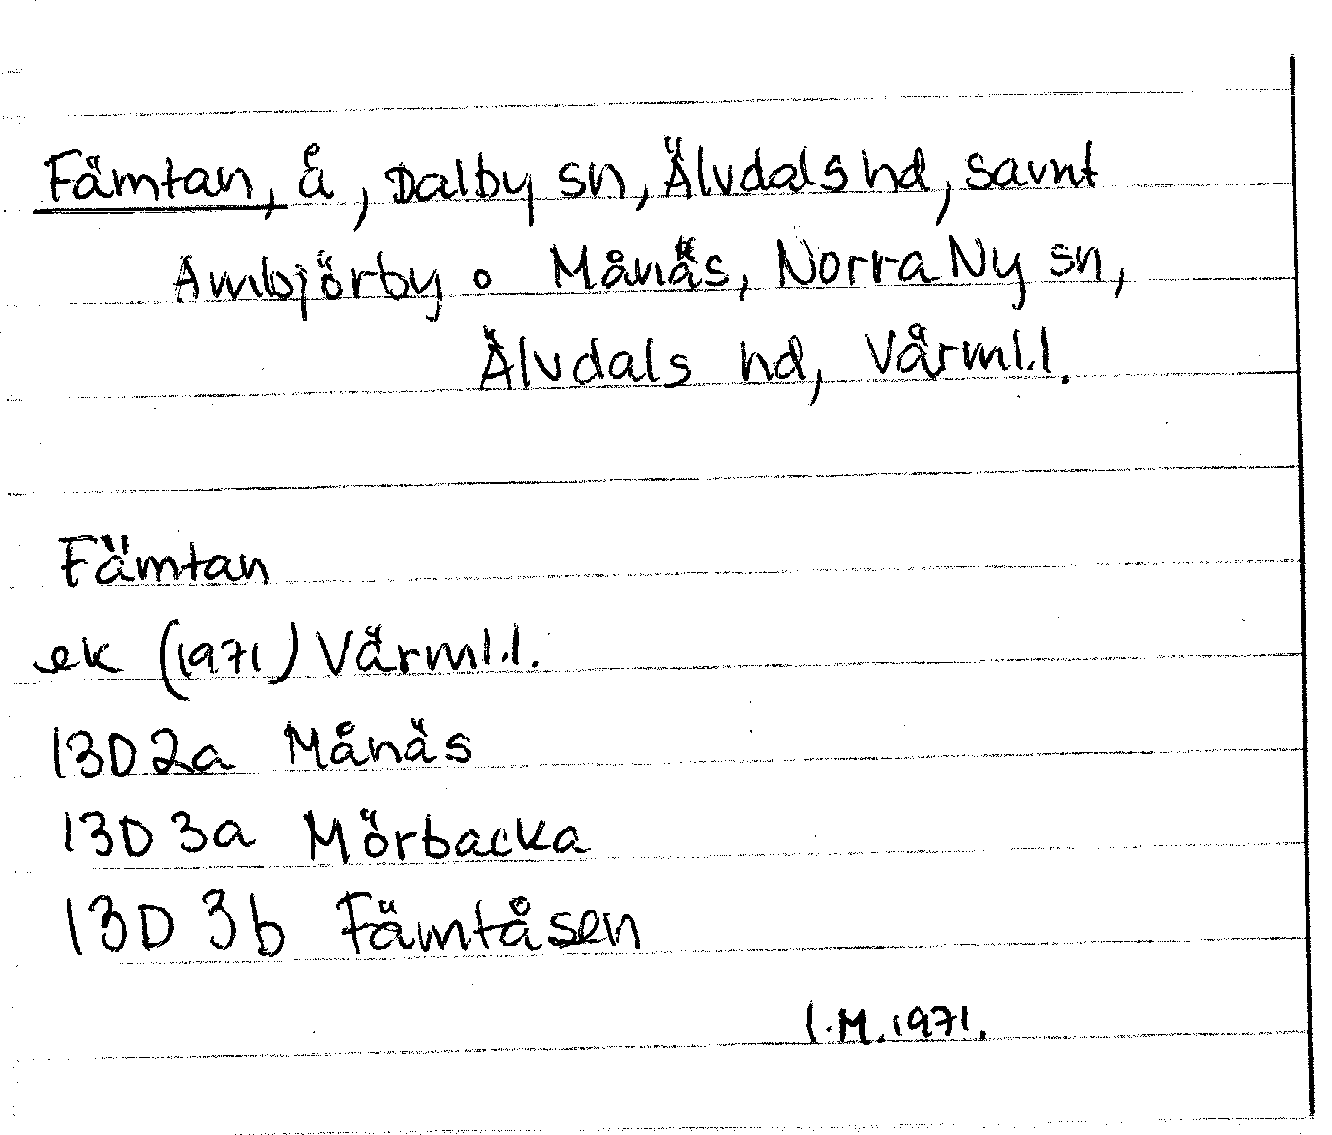 Fämtan, å, Dalby sn, Älvdals hd, samt
Ambjörby o Månäs, Norra Ny sn,
Älvdals hd, Värml.l.
Fämtan
ek (1971) Värml.l.
13D 2a Månäs
13D 3a Mörbacka
13D 3b Fämtåsen
I.M. 1971.